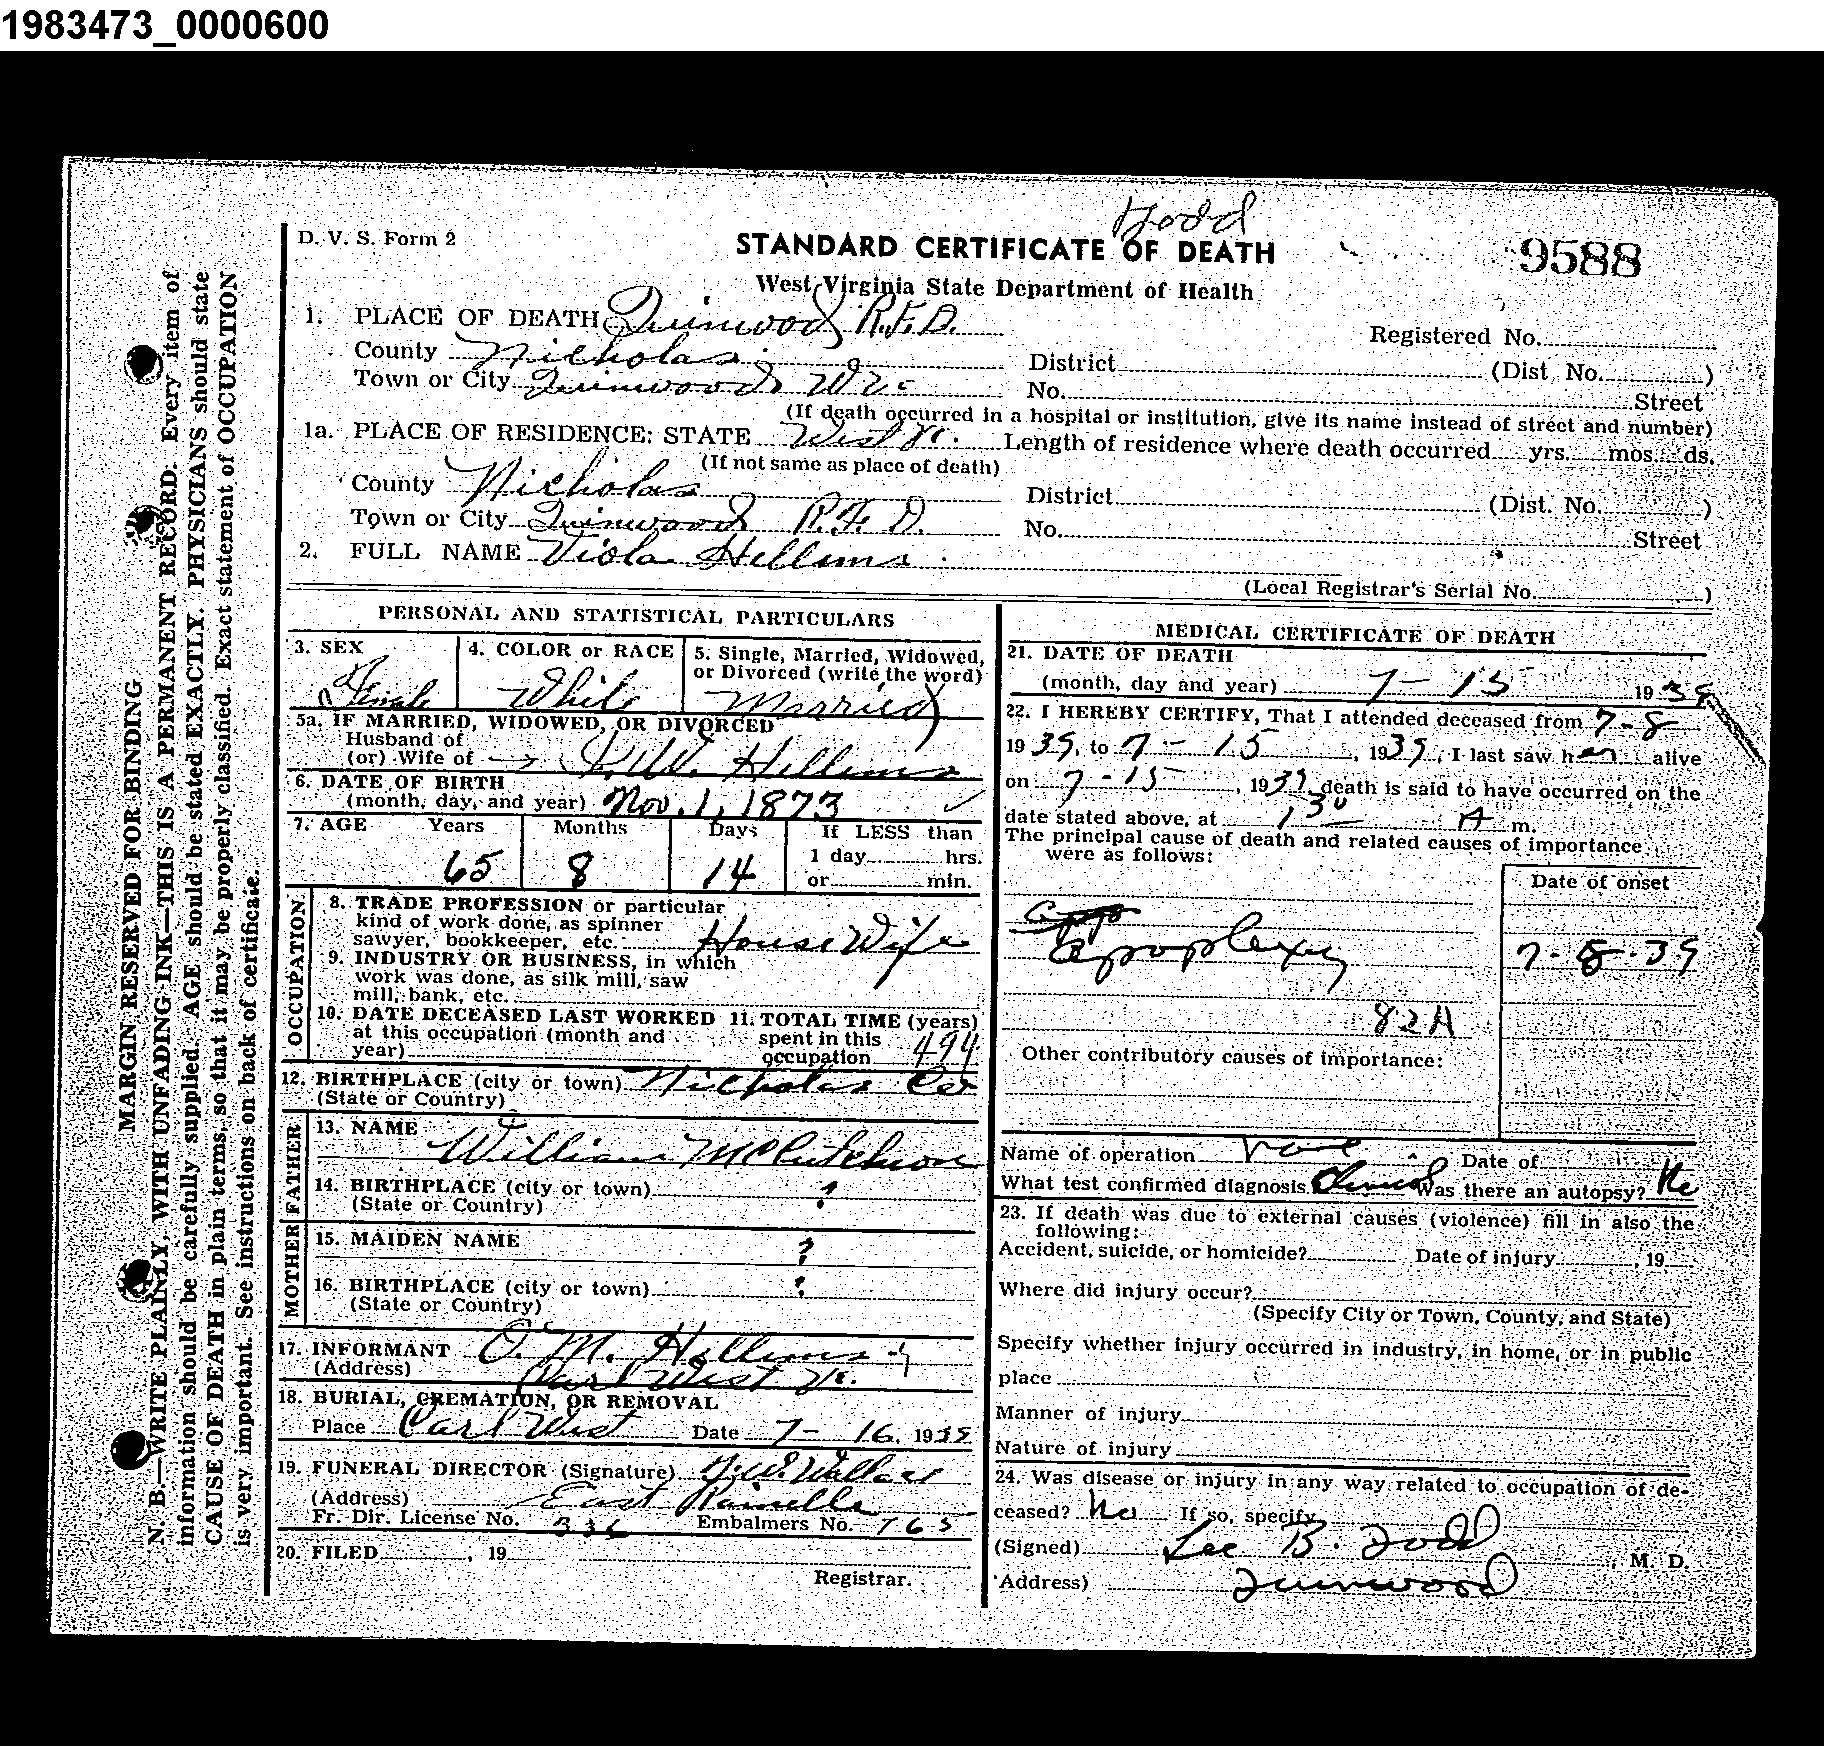 1983473_0000600
Todd
D. V. S. Form 2
STANDARD CERTIFICATE OF DEATH
9588
West Virginia State Department of Health
1. PLACE OF DEATH Quinwood R.F.D.
Registered No.
County Nicholas
District (Dist. No. )
Town or City Quinwood W Va
No. Street
(If death occurred in a hospital or institution, give its name instead of street and number)
1a. PLACE OF RESIDENCE: STATE West Va. Length of residence where death occurred yrs. mos. ds.
(If not same as place of death)
County Nicholas
District (Dist. No. )
Town or City Quinwood R.F.D.
No. Street
2. FULL NAME Viola Hellems
(Local Registrar's Serial No. )
PERSONAL AND STATISTICAL PARTICULARS
3. SEX
Female
4. COLOR or RACE
White
5. Single, Married, Widowed,
or Divorced (write the word)
Married
5a. IF MARRIED, WIDOWED, OR DIVORCED
Husband of
(or) Wife of W. Hellems
6. DATE OF BIRTH
(month, day, and year) Nov. 1, 1873
7. AGE Years Months Days If LESS than
1 day hrs.
or min.
65 8 14
OCCUPATION
8. TRADE PROFESSION or particular
kind of work done, as spinner
sawyer, bookkeeper, etc. House Wife
9. INDUSTRY OR BUSINESS, in which
work was done, as silk mill, saw
mill, bank, etc.
10. DATE DECEASED LAST WORKED
at this occupation (month and
year)
11. TOTAL TIME (years)
spent in this
occupation 494
12. BIRTHPLACE (city or town) Nicholas Co
(State or Country)
FATHER
13. NAME
William McClutchon
14. BIRTHPLACE (city or town) ?
(State or Country)
MOTHER
15. MAIDEN NAME ?
16. BIRTHPLACE (city or town) ?
(State or Country)
17. INFORMANT O. M. Hellems
(Address) Carl West Va.
18. BURIAL, CREMATION, OR REMOVAL
Place Carl West Date 7-16, 1939
19. FUNERAL DIRECTOR (Signature) Wallace
(Address) East Rainelle
Fr. Dir. License No. 336 Embalmers No. 765
20. FILED , 19
Registrar.
MEDICAL CERTIFICATE OF DEATH
21. DATE OF DEATH
(month, day and year) 7-15 1939
22. I HEREBY CERTIFY, That I attended deceased from 7-8
1939, to 7-15, 1939, I last saw her alive
on 7-15, 1939, death is said to have occurred on the
date stated above, at 1 30 A m.
The principal cause of death and related causes of importance
were as follows:
Date of onset
apoplexy 7-8-39
82A
Other contributory causes of importance:
Name of operation none Date of
What test confirmed diagnosis Clinical Was there an autopsy? No
23. If death was due to external causes (violence) fill in also the
following:
Accident, suicide, or homicide? Date of injury , 19
Where did injury occur?
(Specify City or Town, County, and State)
Specify whether injury occurred in industry, in home, or in public
place
Manner of injury
Nature of injury
24. Was disease or injury in any way related to occupation of de-
ceased? No If so, specify
(Signed) Lee B. Todd, M. D.
Address) Quinwood
MARGIN RESERVED FOR BINDING
N. B.—WRITE PLAINLY, WITH UNFADING INK—THIS IS A PERMANENT RECORD. Every item of
information should be carefully supplied. AGE should be stated EXACTLY. PHYSICIANS should state
CAUSE OF DEATH in plain terms, so that it may be properly classified. Exact statement of OCCUPATION
is very important. See instructions on back of certificate.